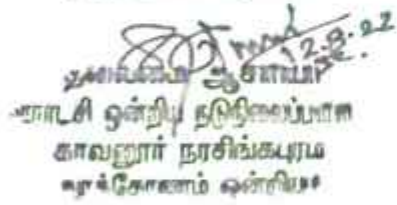 12.8.22
தலைமை ஆசிரியர்
ஊராட்சி ஒன்றிய நடுநிலைப்பள்ளி
காவனூர் நரசிங்கபுரம்
அரக்கோணம் ஒன்றியம்